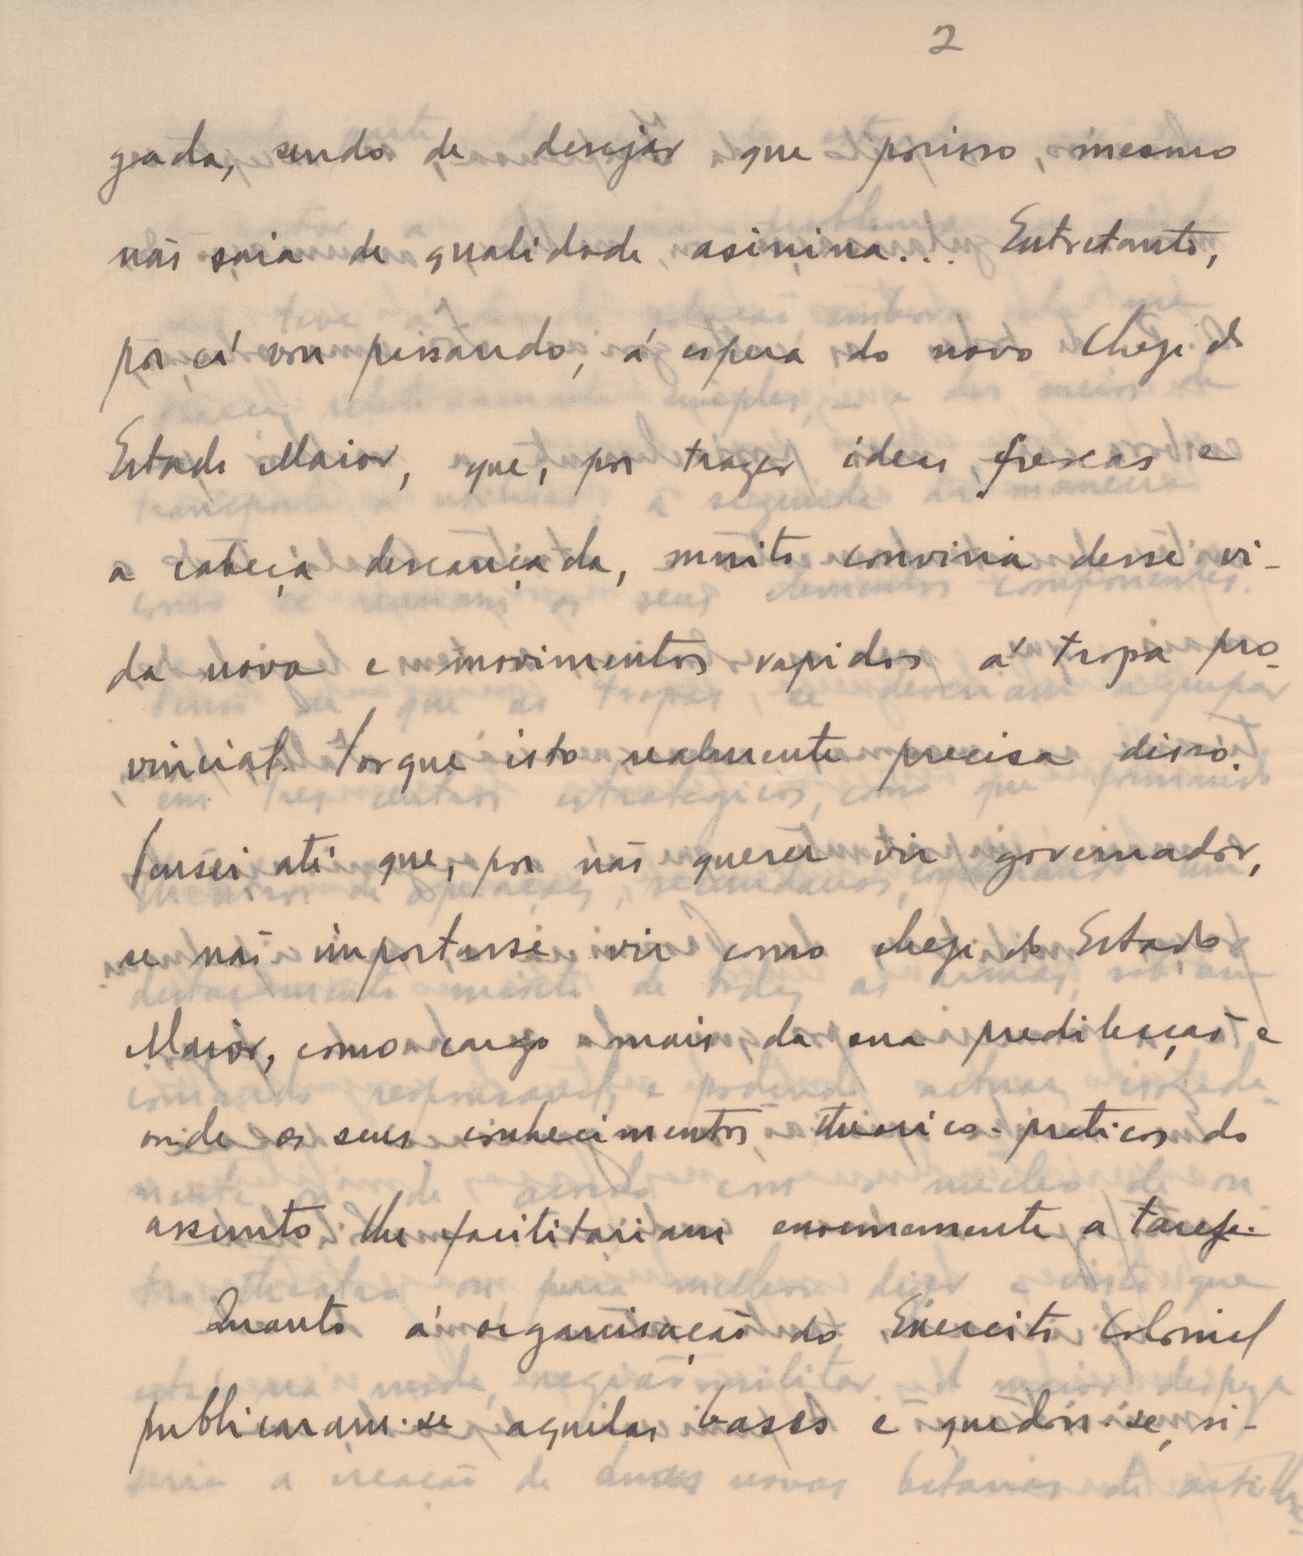 2
gada, sendo de desejar que porisso, mesmo
não saia de qualidade asinina... Entretanto,
por cá vou passando, á espera do novo Chefe do
Estado Maior, que, por trazer ideas frescas e
a cabeça descançada, muito conviria desse vi-
da nova e movimentos rapidos á tropa pro-
vincial. Porque isto realmente precisa disso.
Pensei até que, por não querer vir governador,
se não importasse vir como chefe do Estado
Maior, como cargo mais da sua predileção e
onde os seus conhecimentos theorico-praticos do
assunto lhe facilitariam enormemente a tarefa.
Quanto á organisação do Exercito Colonial
publicaram-se aquelas bases e quedou-se, si-